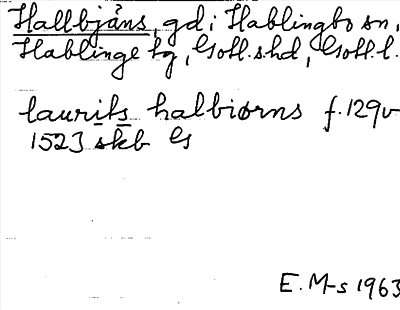 Hallbjäns, gd i Hablingbo sn,
Hablinge tg, Gotl. s. hd, Gotl. l.
laurits halbiørns f. 129v
1523 skb Gs
E. M-s 1963